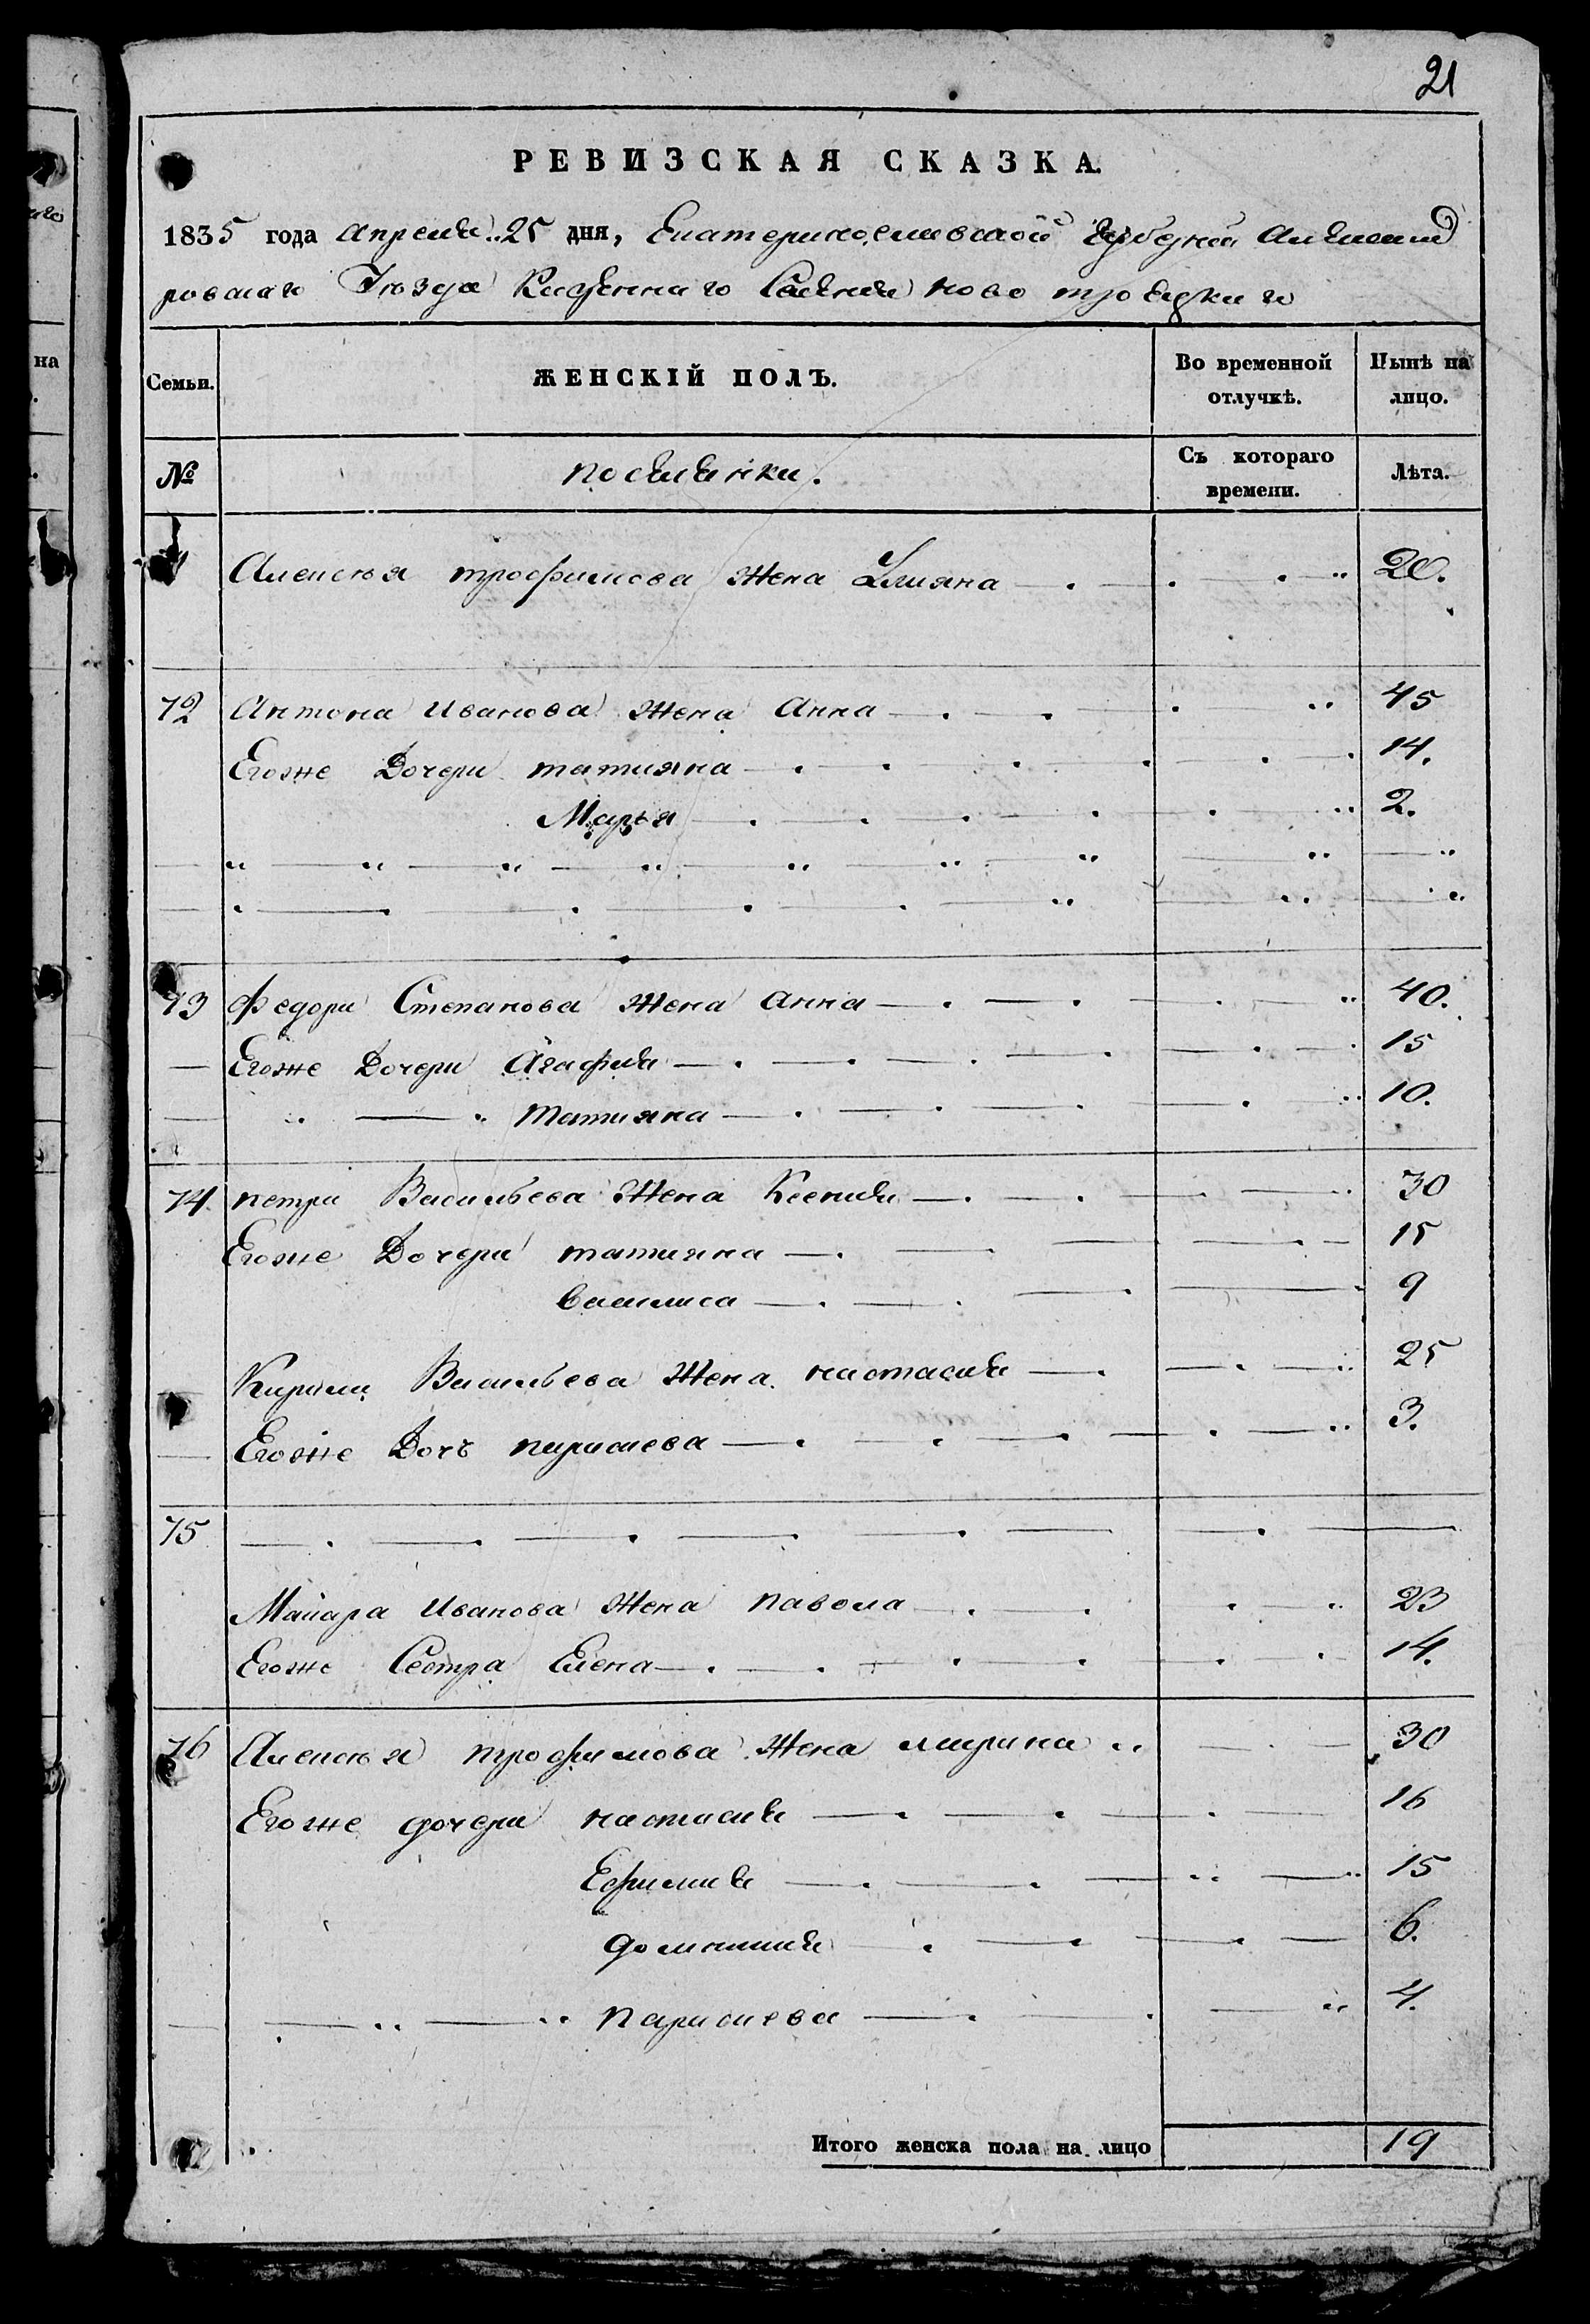 21
РЕВИЗСКАЯ СКАЗКА.
1835 года Апреля 25 дня, Екатеринославской Губерни Александ
ровскаго Уезда Казеннаго Селения ново троецкаго
Семьи. ЖЕНСКІЙ ПОЛЪ. Во временной отлучкѣ. Нынѣ на лицо.
№ поселянки. Съ котораго времени. Лѣта.
Алексѣя трофимова Жена Улияна 20.
72 Антона Иванова Жена Анна 45
Егоже Дочери татияна 14.
Марья 2.
73 Федора Степанова Жена Анна 40.
Егоже Дочери Агафия 15
Татияна 10.
74 петра Васильева Жена Ксения 30
Егоже Дочери татияна 15
василиса 9
Кирила Васильева Жена настасия 25
Егоже Дочъ параскева 3.
75
Макара Иванова Жена павола 23
Егоже Сестра Елена 14.
76 Алексѣя трофимова Жена марина 30
Егоже дочери настасия 16
Ефимия 15
домникия 6.
параскева 4.
Итого женска пола на лицо 19
на